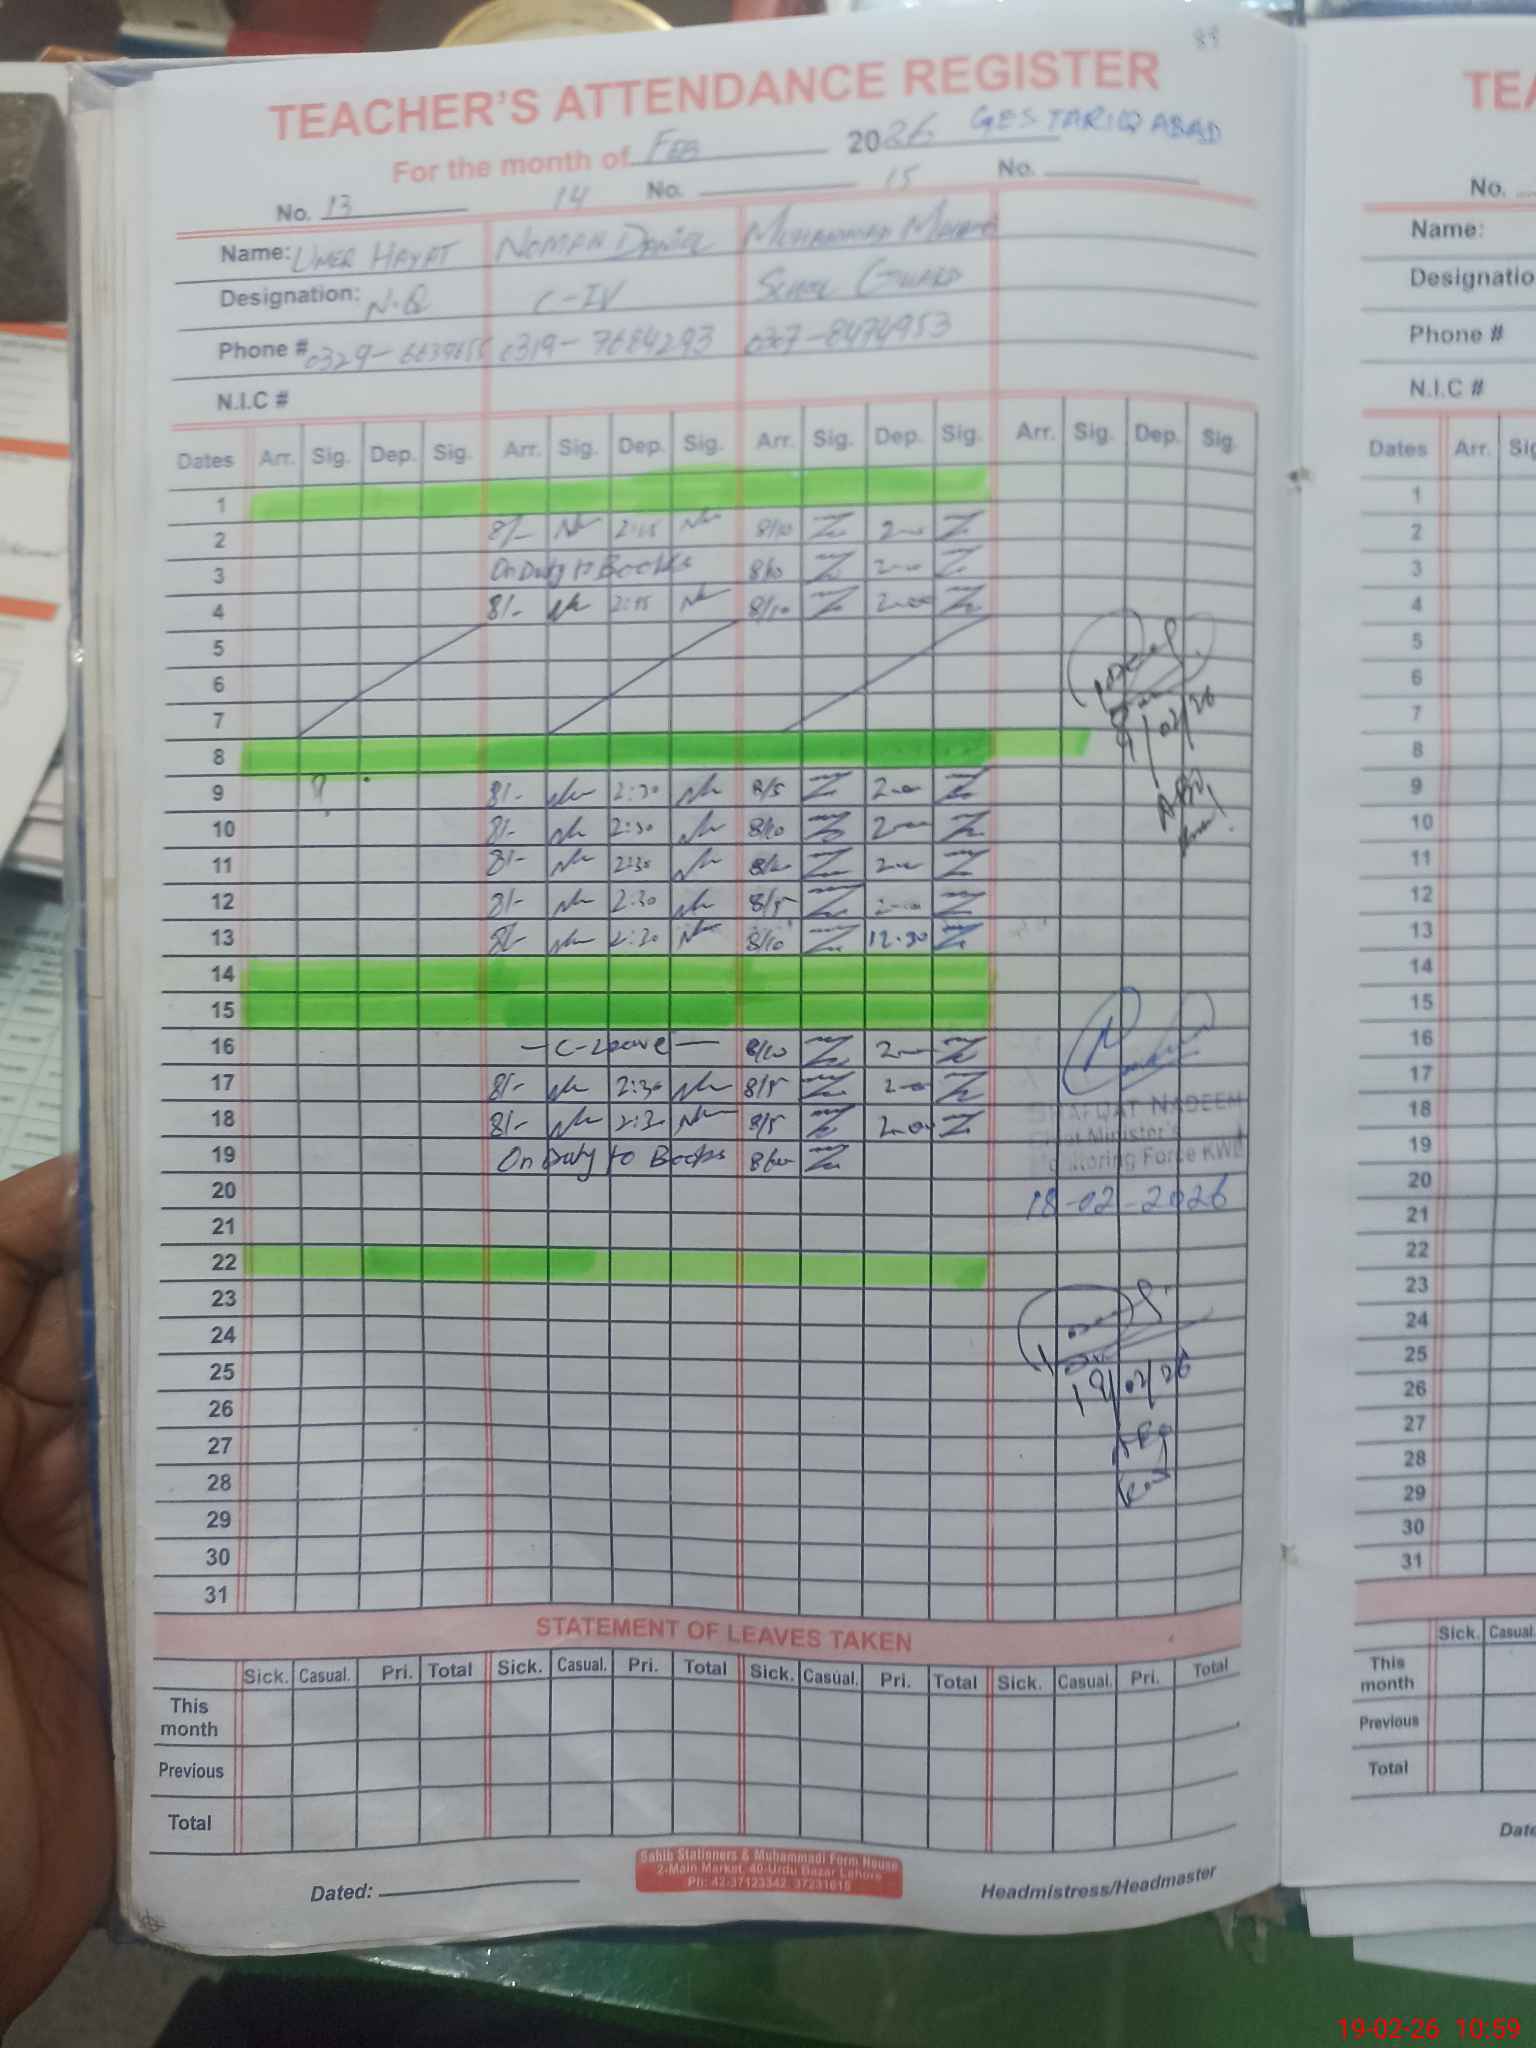 89
TEACHER'S ATTENDANCE REGISTER
For the month of FEB 2026 GES TARIQ ABAD
No. 13 14 No. 15 No.
Name: UMER HAYAT NOMAN DANIEL MUHAMMAD
Designation: N.Q C-IV SCHOOL GUARD
Phone # 0329-6639655 0319-7684293 0307-8474953
N.I.C #
Dates Arr. Sig. Dep. Sig. Arr. Sig. Dep. Sig. Arr. Sig. Dep. Sig. Arr. Sig. Dep. Sig.
1
2 8/- 2:15 8/10 2-00
3 On Duty to Books 8/10 2-00
4 8/- 2:15 8/10 2-00
5
6
7
8
9 8/- 2:30 8/5 2-00
10 8/- 2:30 8/10 2-00
11 8/- 2:30 2-00
12 8/- 2:30 8/5 2-00
13 8/- 2:30 8/10 12.30
14
15
16 - C-Leave - 8/10 2-00
17 8/- 2:30 8/5 2-00
18 8/- 2:30 8/5 2-00
19 On Duty to Books
20
21
22
23
24
25
26
27
28
29
30
31
9/02/26
SHAFQAT NADEEM
Chief Minister's
Monitoring Force KWL
18-02-2026
19/02/26
STATEMENT OF LEAVES TAKEN
Sick. Casual. Pri. Total Sick. Casual. Pri. Total Sick. Casual. Pri. Total Sick. Casual. Pri. Total
This month
Previous
Total
Sahib Stationers & Muhammadi Form House
2-Main Market, 40-Urdu Bazar Lahore
Ph: 42-37123342, 37231615
Dated: Headmistress/Headmaster
TEA
No.
Name:
Designatio
Phone #
N.I.C #
Dates Arr. Sig
1
2
3
4
5
6
7
8
9
10
11
12
13
14
15
16
17
18
19
20
21
22
23
24
25
26
27
28
29
30
31
Sick. Casual.
This month
Previous
Total
Date
19-02-26 10:59